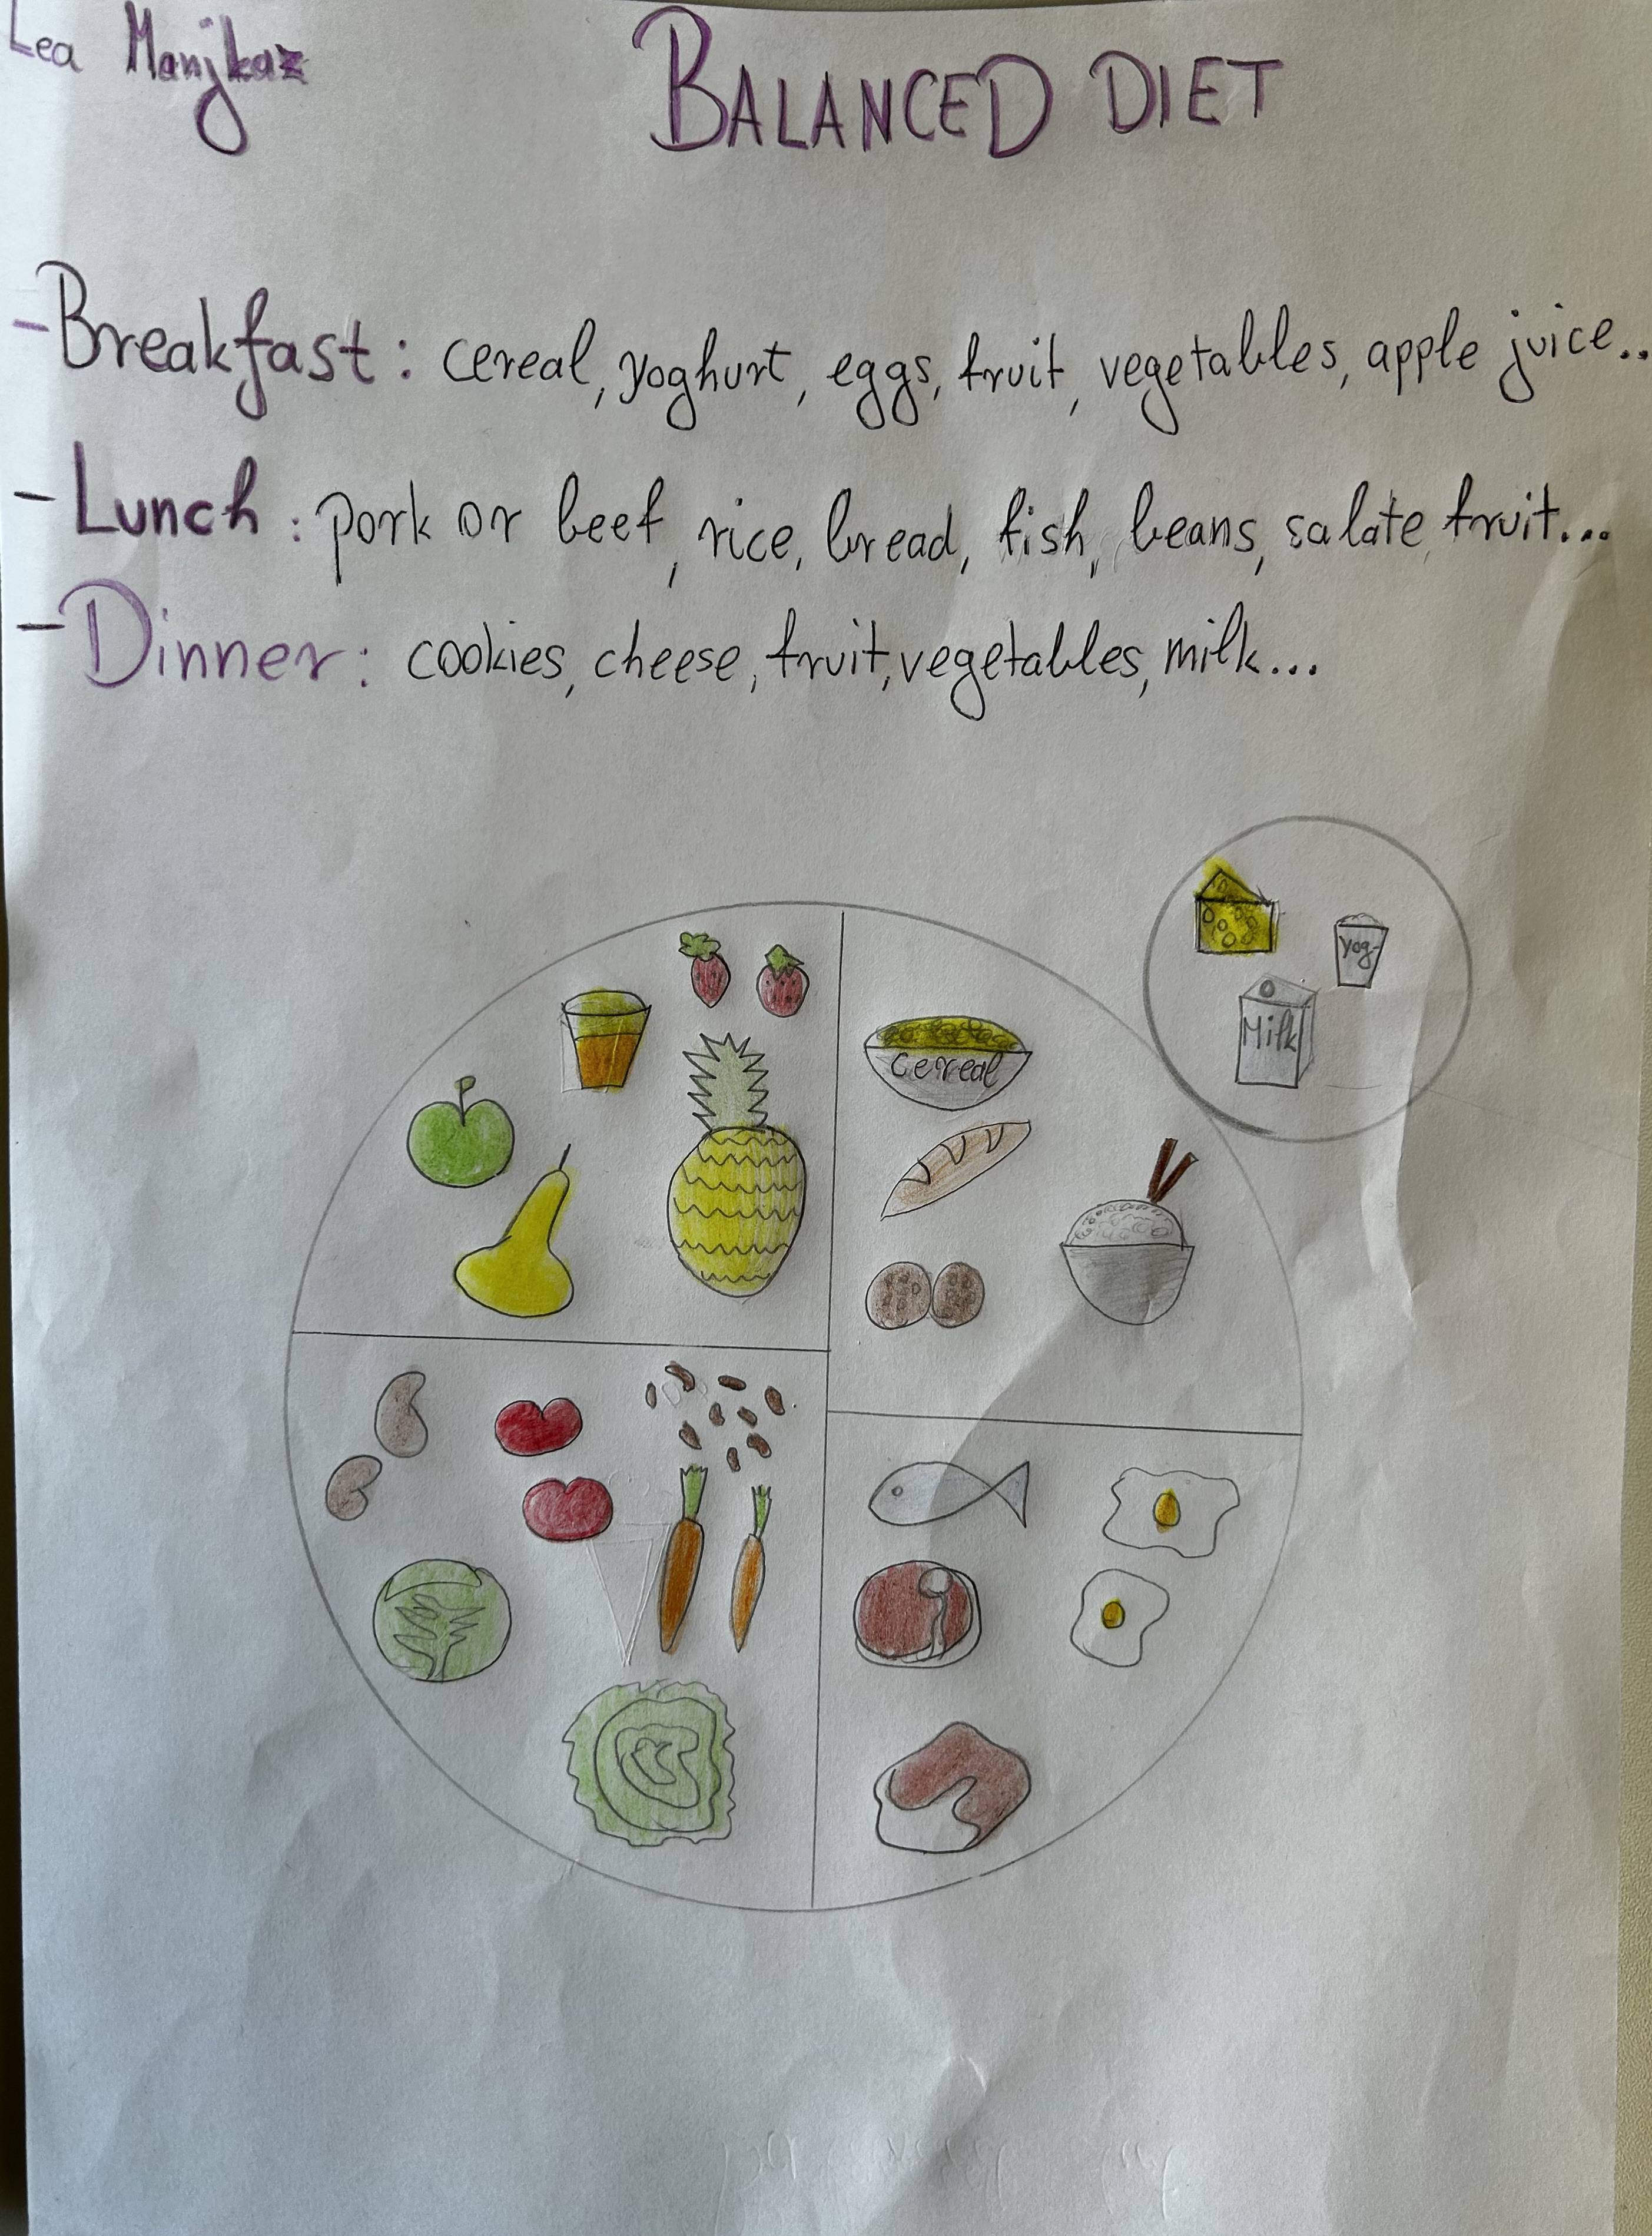 Lea Manjkaz
BALANCED DIET
- Breakfast: cereal, yoghurt, eggs, fruit, vegetables, apple juice...
- Lunch: pork or beef, rice, bread, fish, beans, salate fruit...
- Dinner: cookies, cheese, fruit, vegetables, milk...
yog-
Milk
cereal